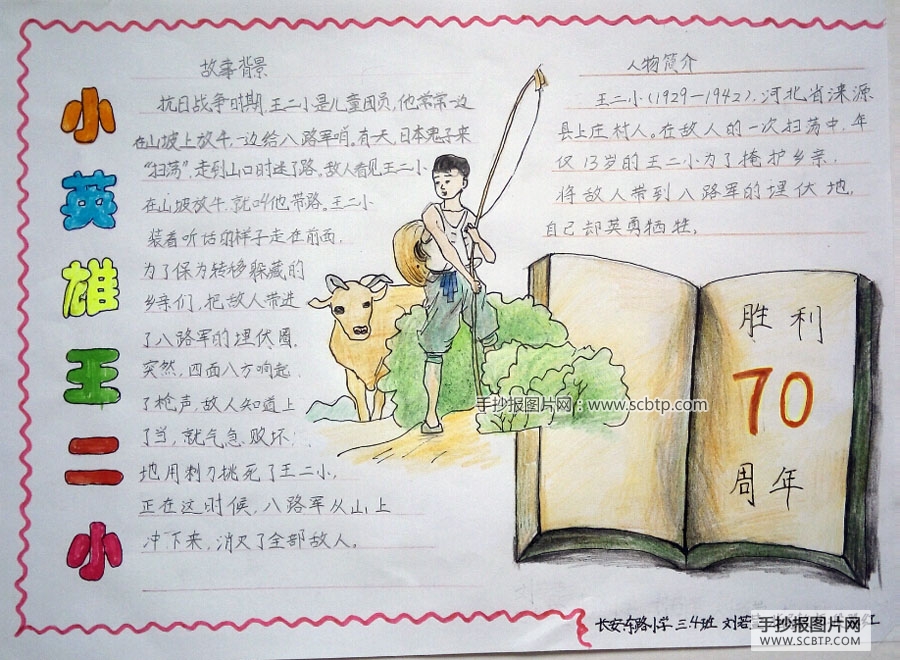 小英雄王二小
故事背景
抗日战争时期,王二小是儿童团员,他常常一边
在山坡上放牛,一边给八路军哨。有一天,日本鬼子来
“扫荡”,走到山口时迷了路。敌人看见王二小
在山坡放牛,就叫他带路。王二小
装着听话的样子走在前面,
为了保为转移躲藏的
乡亲们,把敌人带进
了八路军的埋伏圈.
突然,四面八方响起
了枪声,敌人知道上
了当,就气急败坏!
地用刺刀挑死了王二小,
正在这时候,八路军从山上
冲下来,消灭了全部敌人。
人物简介
王二小(1929-1942),河北省涞源
县上庄村人。在敌人的一次扫荡中,年
仅13岁的王二小为了掩护乡亲,
将敌人带到八路军的埋伏地,
自己却英勇牺牲,
胜利
70
周年
手抄报图片网:www.scbtp.com
长安东路小学三4班 刘若
手抄报图片网
WWW.SCBTP.COM